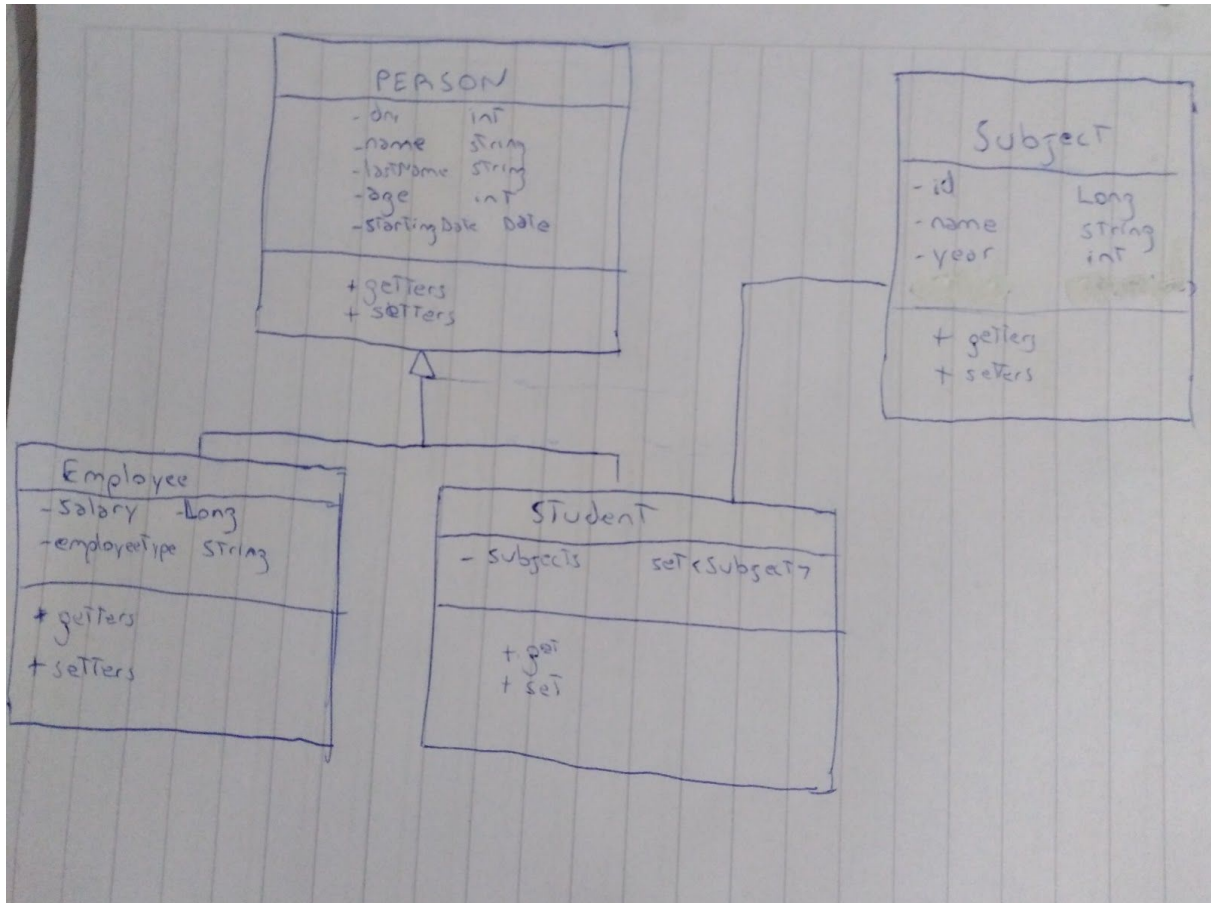 PERSON
- dni int
- name string
- lastName string
- age int
- startingDate Date
+ getters
+ setters
Subject
- id Long
- name string
- year int
+ getters
+ setters
Employee
- salary - Long
- employeeType String
+ getters
+ setters
Student
- subjects set<Subject>
+ get
+ set